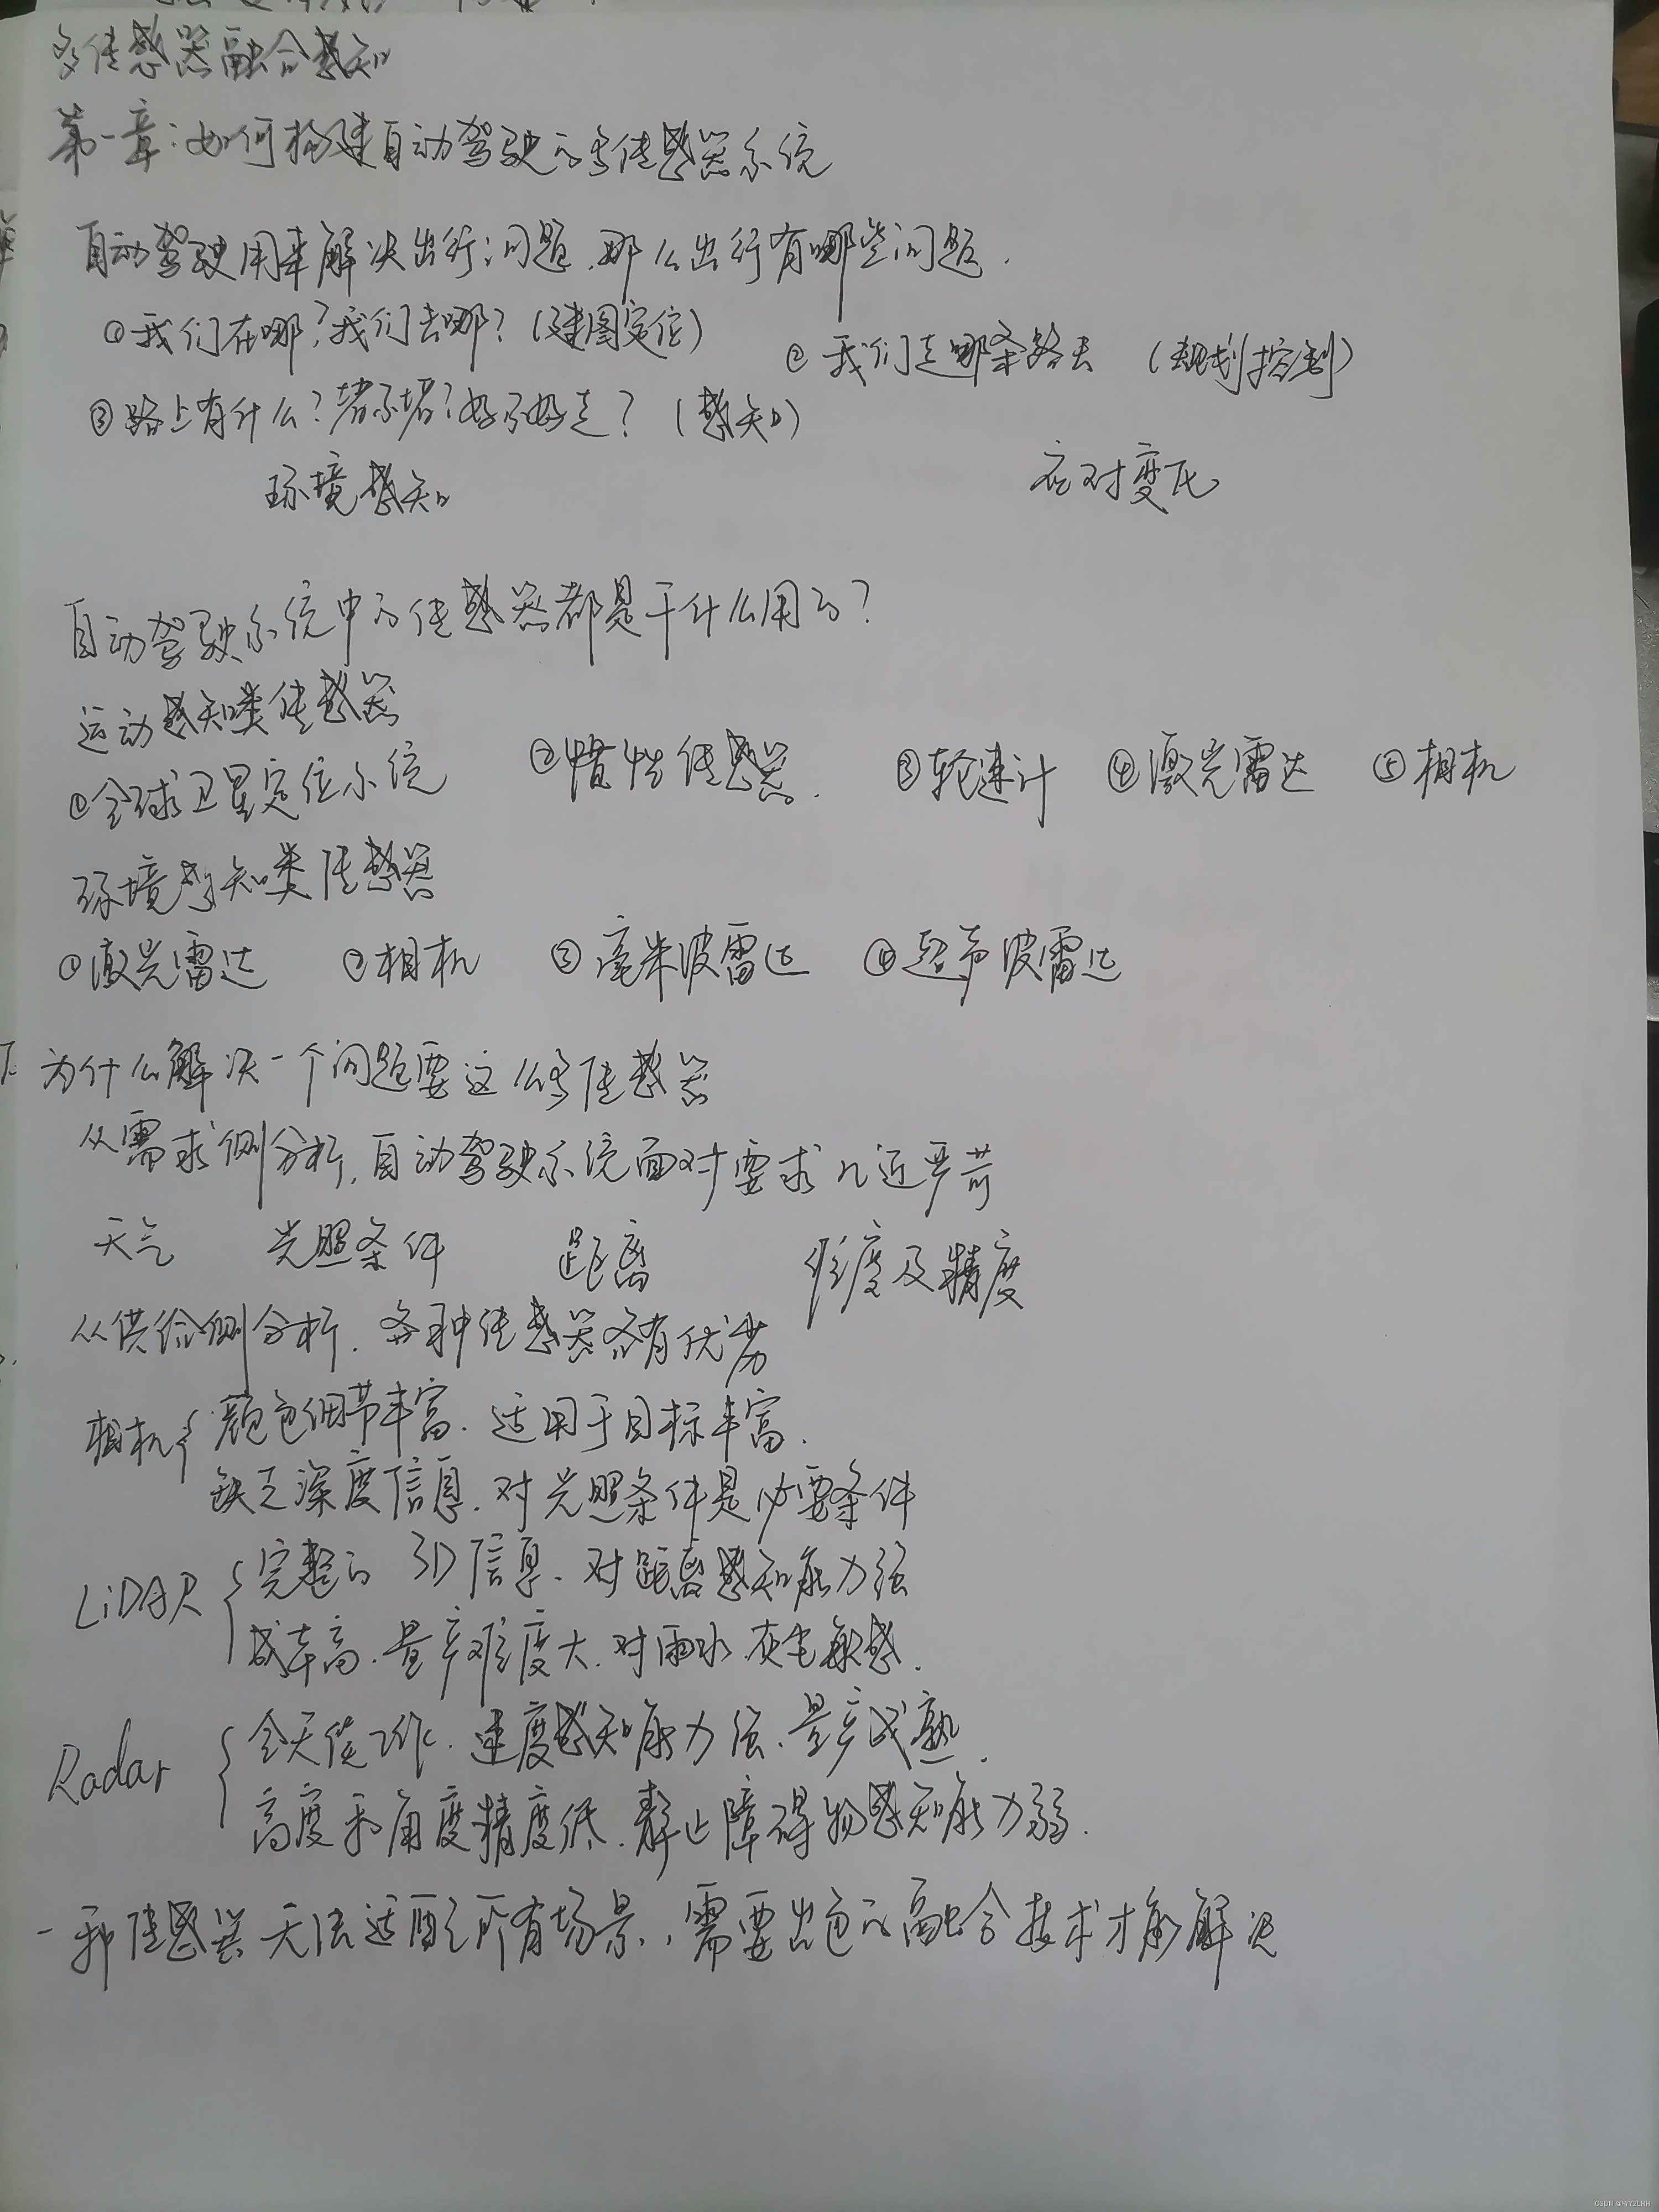 多传感器融合感知
第一章:如何构建自动驾驶的多传感器系统
自动驾驶用来解决出行问题,那么出行有哪些问题.
①我们在哪?我们去哪?(建图定位) ②我们走哪条路去 (规划控制)
③路上有什么?堵不堵?好不好走?(感知)
环境感知 应对变化
自动驾驶系统中的传感器都是干什么用的?
运动感知类传感器
①全球卫星定位系统 ②惯性传感器. ③轮速计 ④激光雷达 ⑤相机
环境感知类传感器
①激光雷达 ②相机 ③毫米波雷达 ④超声波雷达
为什么解决一个问题要这么多传感器
从需求侧分析,自动驾驶系统面对要求几近严苛
天气 光照条件 距离 维度及精度
从供给侧分析.各种传感器各有优劣
相机{颜色细节丰富.适用于目标丰富.
缺乏深度信息.对光照条件是必要条件
LiDAR{完整的3D信息、对距离感知能力强
成本高.量产难度大.对雨水.灰尘敏感.
Radar{全天候工作.速度感知能力强、量产成熟.
高度和角度精度低.静止障碍物感知能力弱.
一种传感器无法适配所有场景,需要出色的融合技术才能解决
CSDN @FYY2LHH